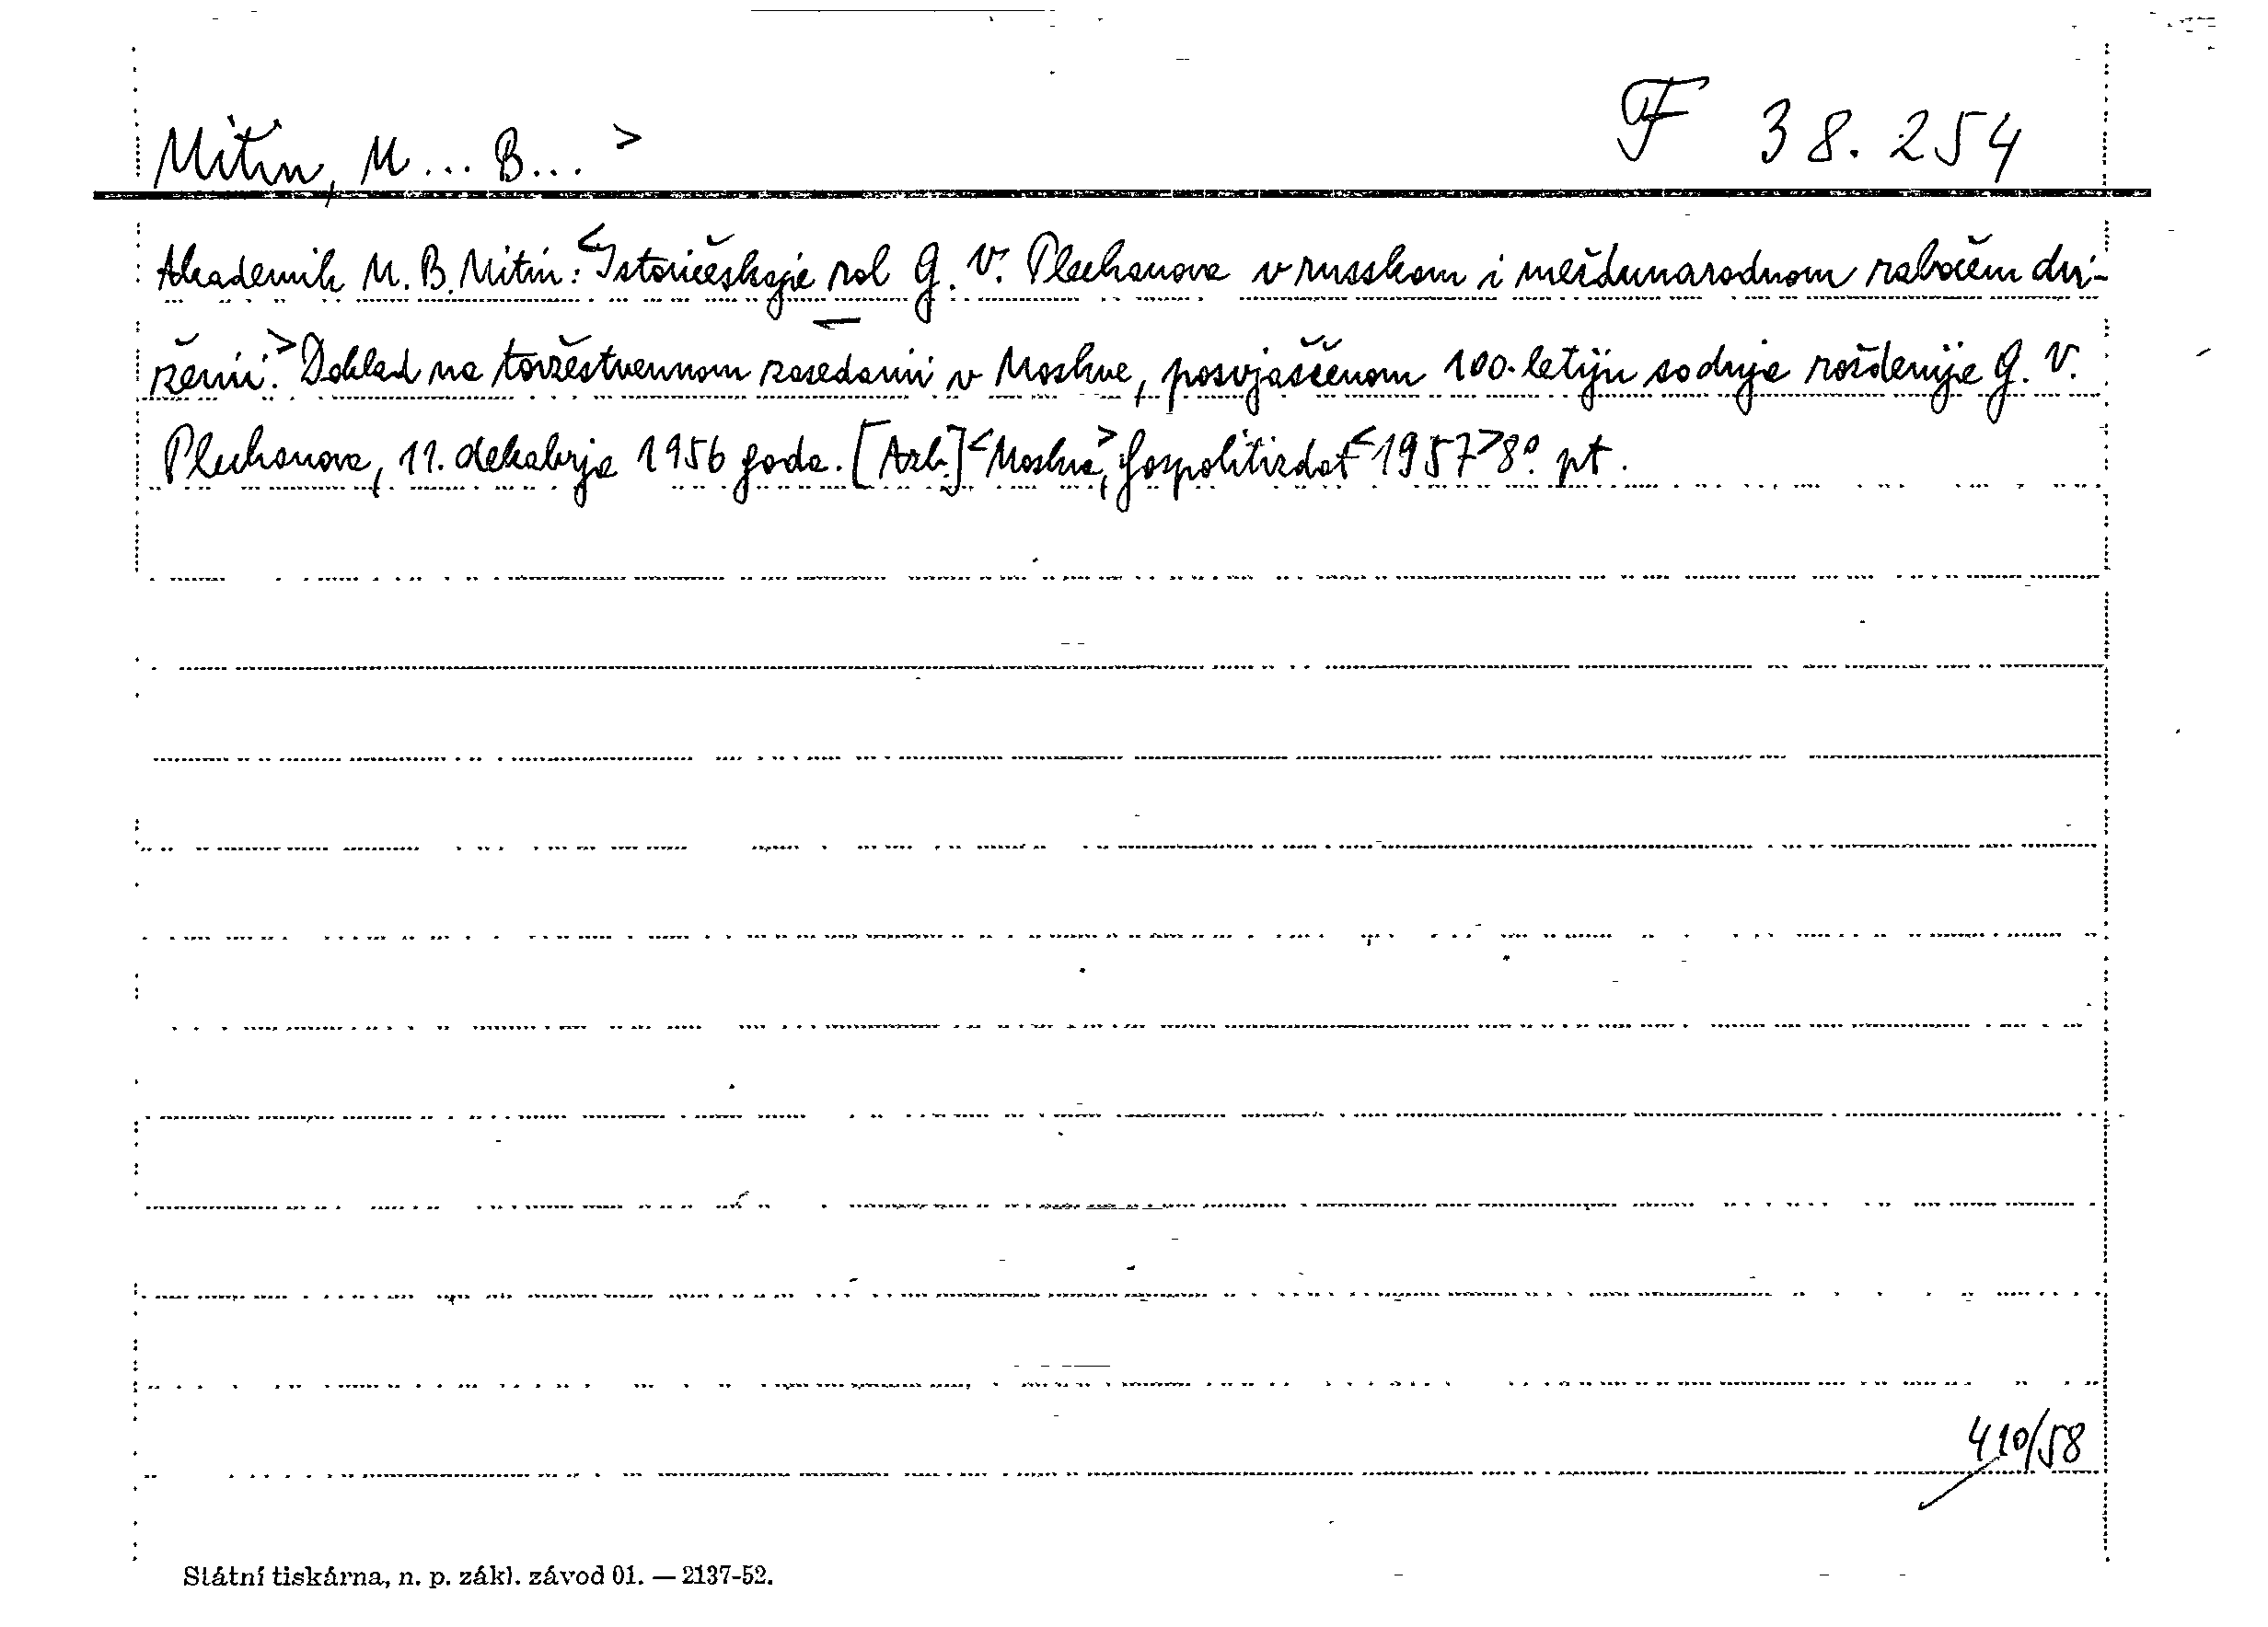 Mitin, M... B... >
F 38.254
Akademik M. B. Mitin: <Istoričeskaja rol G. V. Plechanova v russkom i meždunarodnom rabočem dvi-
ženii.> Doklad na toržestvennom zasedanii v Moskve, posvjaščenom 100-letiju so dnja roždenija G. V.
Plechanova, 11. dekabrja 1956 goda. [Azb.] <Moskva>, Gospolitizdat <1957> 8° pt.
410/58
Státní tiskárna, n. p. zákl. závod 01. — 2137-52.